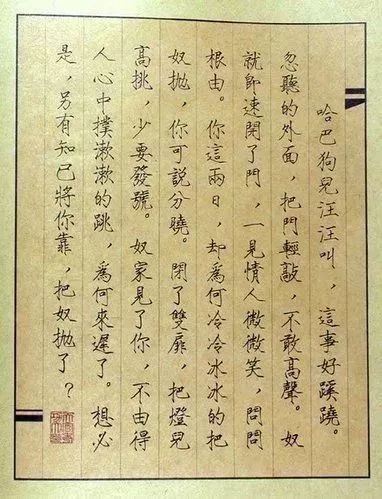 哈巴狗兒汪汪叫，這事好蹊蹺。
忽聽的外面，把門輕敲，不敢高聲。奴
就師速閉了門，一見情人微微笑，問問
根由。你這兩日，却爲何冷冷冰冰的把
奴拋，你可説分曉。閉了雙扉，把燈兒
高挑，少要發號。奴家見了你，不由得
人心中撲漱漱的跳，爲何來遲了。想必
是，另有知已將你靠，把奴拋了？